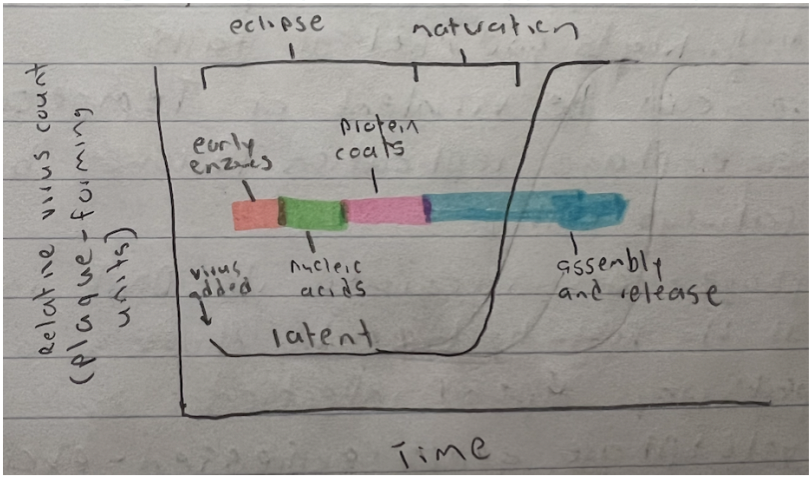 eclipse
maturation
Relative virus count
(plaque-forming
units)
early
protein
coats
virus
added
nucleic
acids
assembly
and release
latent
Time